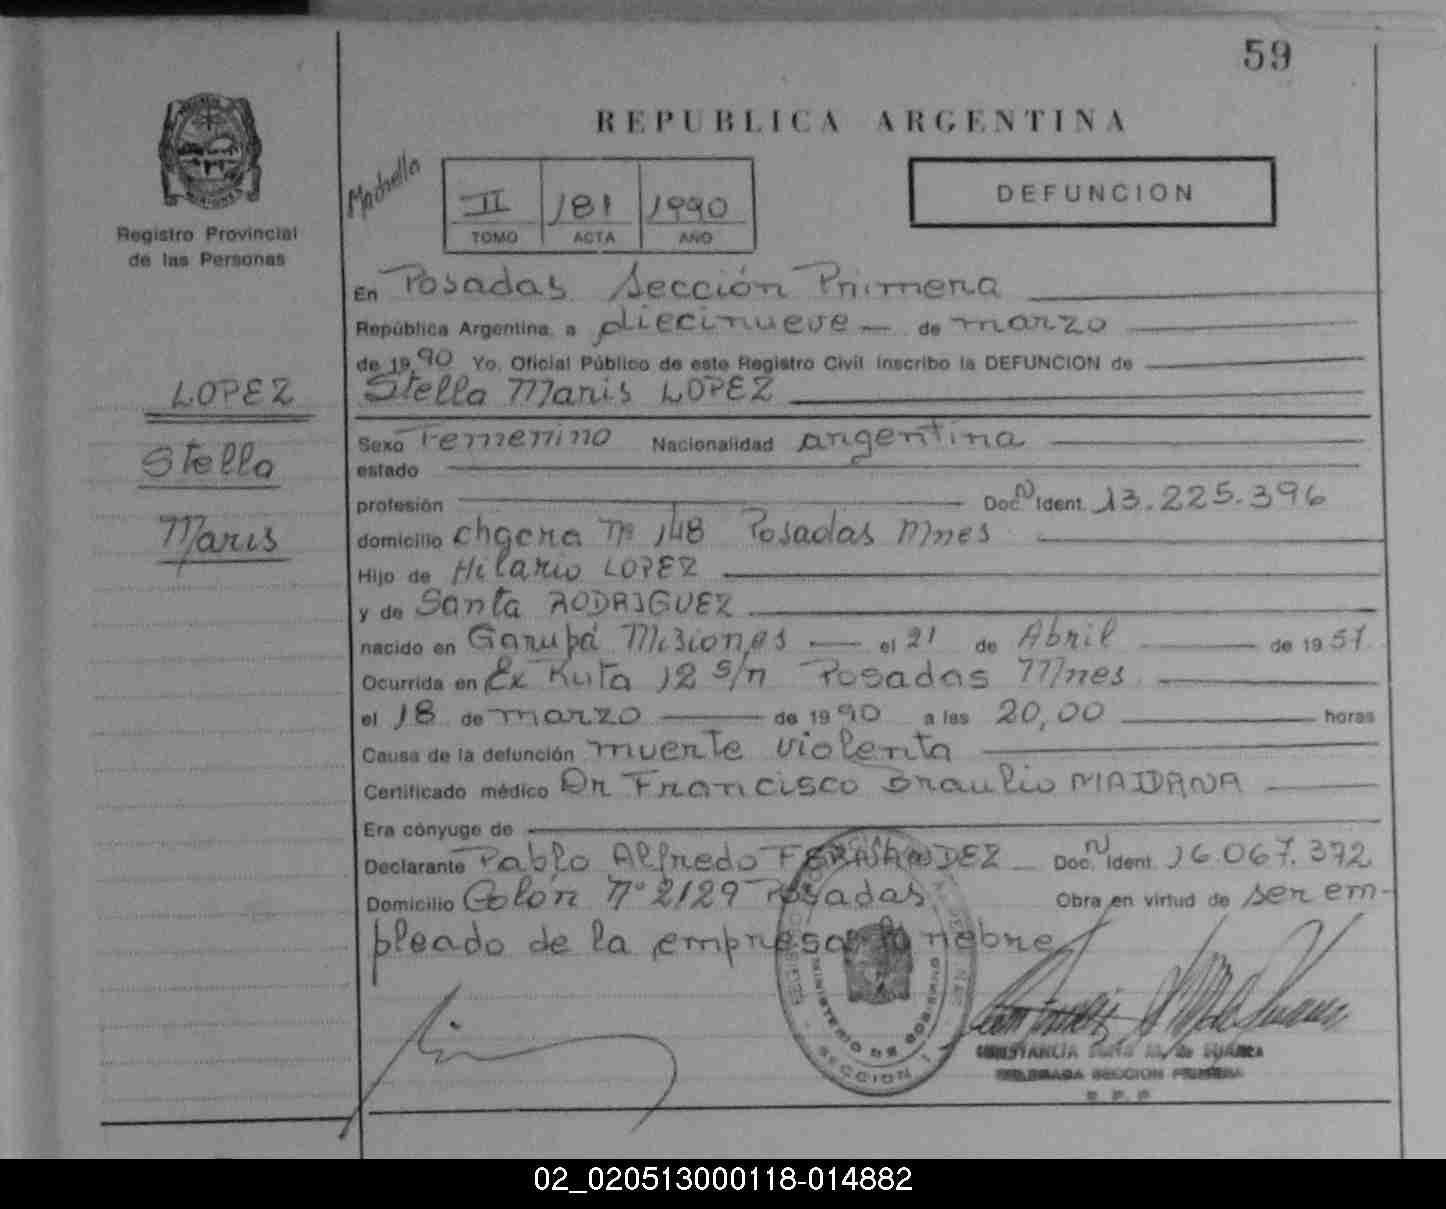 59
REPUBLICA ARGENTINA
Registro Provincial
de las Personas
II 181 1990
TOMO ACTA AÑO
DEFUNCION
LOPEZ
Stella
Maris
En Posadas Sección Primera
República Argentina, a diecinueve de marzo
de 1990 Yo, Oficial Público de este Registro Civil inscribo la DEFUNCION de
Stella Maris LOPEZ
Sexo Femenino Nacionalidad argentina
estado
profesión Doc. N Ident. 13.225.396
domicilio chacra Nº 148 Posadas Mnes
Hijo de Hilario LOPEZ
y de Santa RODRIGUEZ
nacido en Garupá Misiones el 21 de Abril de 1957
Ocurrida en Ex Ruta 12 s/n Posadas Mnes
el 18 de marzo de 1990 a las 20,00 horas
Causa de la defunción muerte violenta
Certificado médico Dr Francisco Braulio MAIDANA
Era cónyuge de
Declarante Pablo Alfredo FERNANDEZ Doc. N Ident. 16.067.372
Domicilio Colón Nº 2129 Posadas Obra en virtud de ser em-
pleado de la empresa fúnebre
MINISTERIO DE GOBIERNO
SECCION 1
DELEGADA SECCION PRIMERA
R. P. P.
02_020513000118-014882